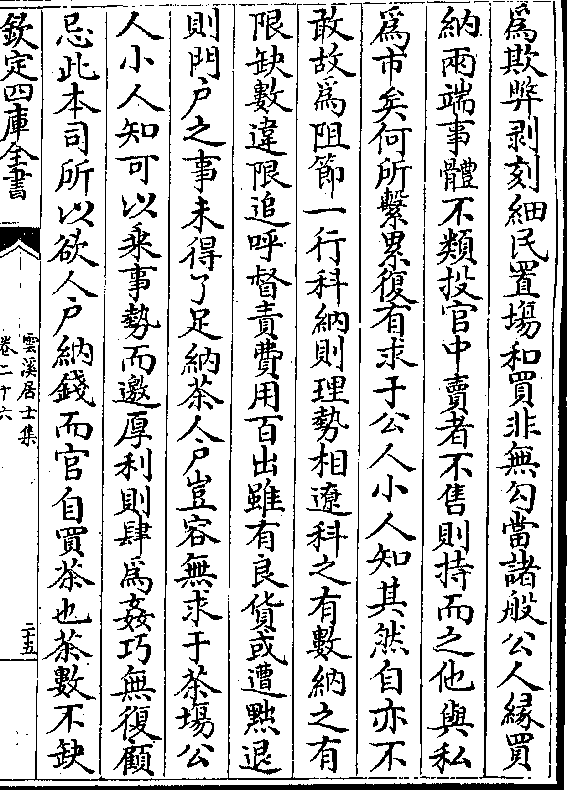 爲欺弊剥刻細民置塲和買非無勾當諸般公人緣買
納兩端事體不類投官中賣者不售則持而之他與私
爲市矣何所繫累復有求于公人小人知其然自亦不
敢故爲阻節一行科納則理勢相遼科之有數納之有
限缺數違限追呼督責費用百出雖有良貨或遭㸃退
則門户之事未得了足納茶人户豈容無求于茶塲公
人小人知可以乘事勢而邀厚利則肆爲姦巧無復顧
忌此本司所以欲人户納錢而官自買茶也茶數不缺
欽定四庫全書
雲溪居士集
卷二十六
二十五